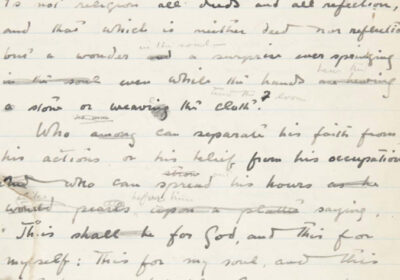 Is not religion all deeds and all reflection,
and that which is neither deed nor reflection
in the soul
but a wonder and a surprise ever springing
hew the
in the soul even while the hands are hewing
tend the loom
a stone or weaving the cloth?
Who among can separate his faith from
his actions, or his belief from his occupation
And who can spread his hours as he
before him
would pearls upon a platter saying,
"This shall be for God, and this for
myself: This for my soul, and this